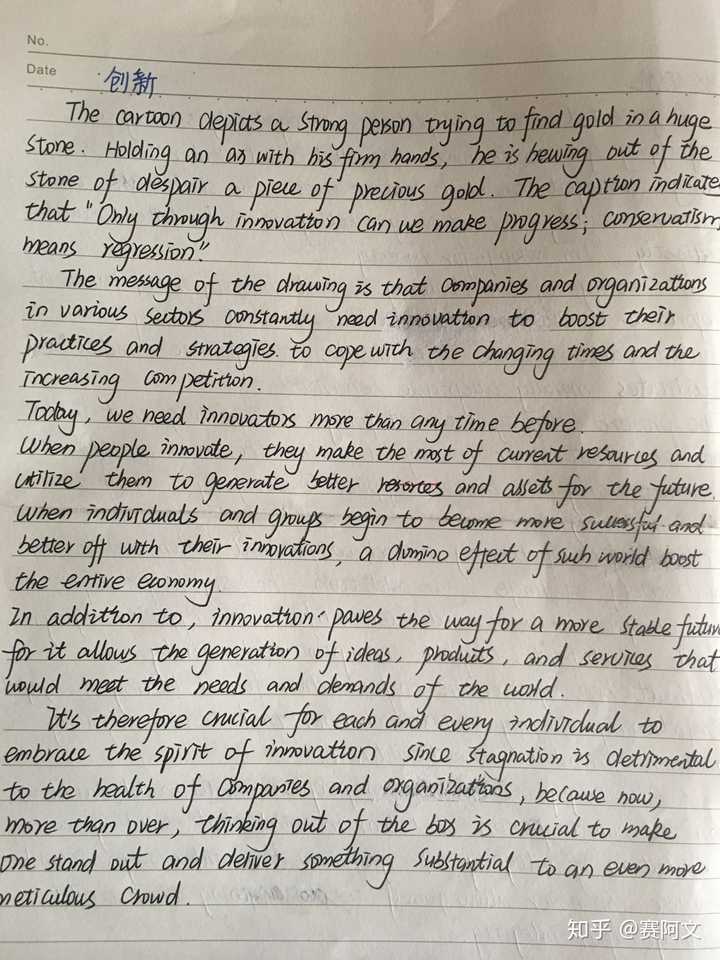 No.
Date
创新
The cartoon depicts a strong person trying to find gold in a huge
stone. Holding an ax with his firm hands, he is hewing out of the
stone of despair a piece of precious gold. The caption indicate
that "Only through innovation can we make progress; conservatism
means regression."
The message of the drawing is that companies and organizations
in various sectors constantly need innovation to boost their
practices and strategies to cope with the changing times and the
increasing competition.
Today, we need innovators more than any time before.
When people innovate, they make the most of current resources and
utilize them to generate better resortes and assets for the future.
When individuals and groups begin to become more successful and
better off with their innovations, a dumino effect of such world boost
the entire economy.
In addition to, innovation paves the way for a more stable future
for it allows the generation of ideas, products, and services that
would meet the needs and demands of the world.
It's therefore crucial for each and every individual to
embrace the spirit of innovation since stagnation is detrimental
to the health of companies and organizations, because now,
more than over, thinking out of the box is crucial to make
one stand out and deliver something substantial to an even more
meticulous crowd.
知乎 @赛阿文